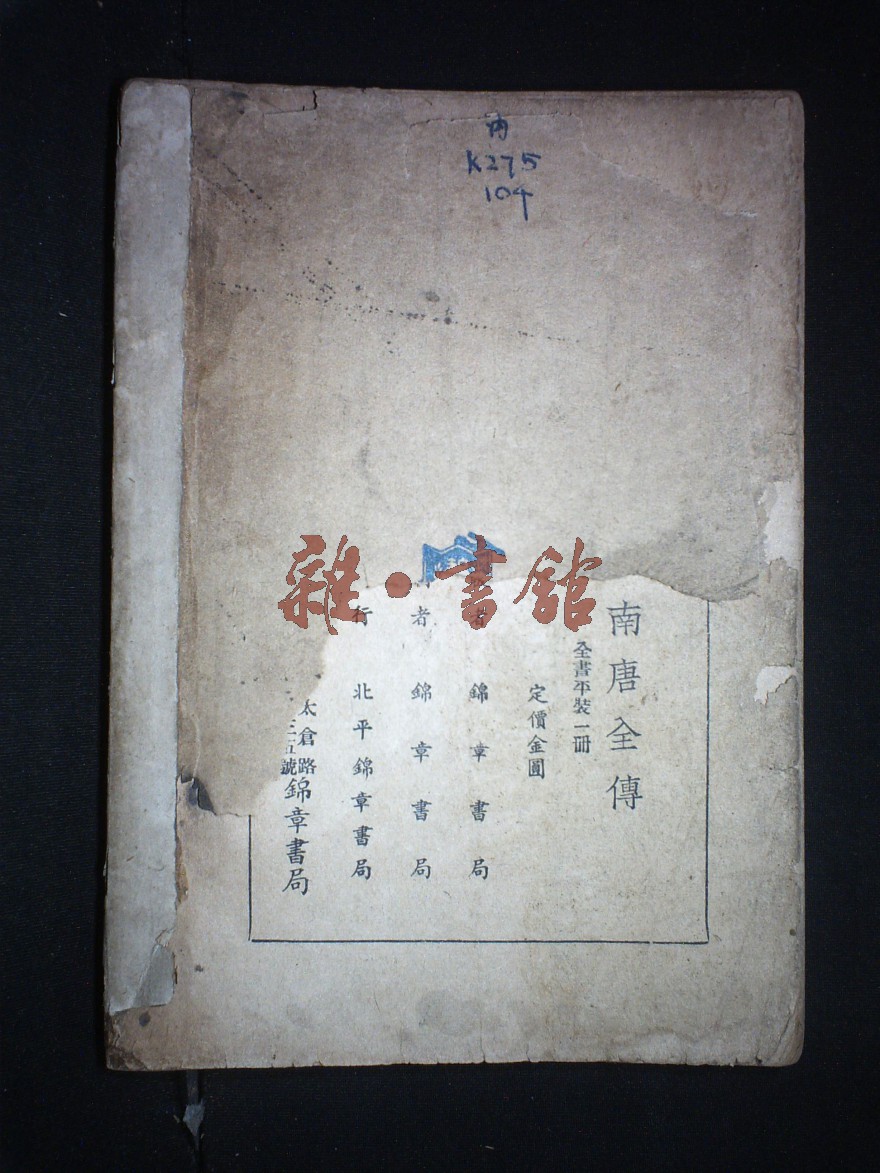 内
K275
104
雜·書館
南唐全傳
全書平裝一冊
定價金圓
者 錦章書局
者 錦章書局
行 北平錦章書局
太倉路
五號
錦章書局